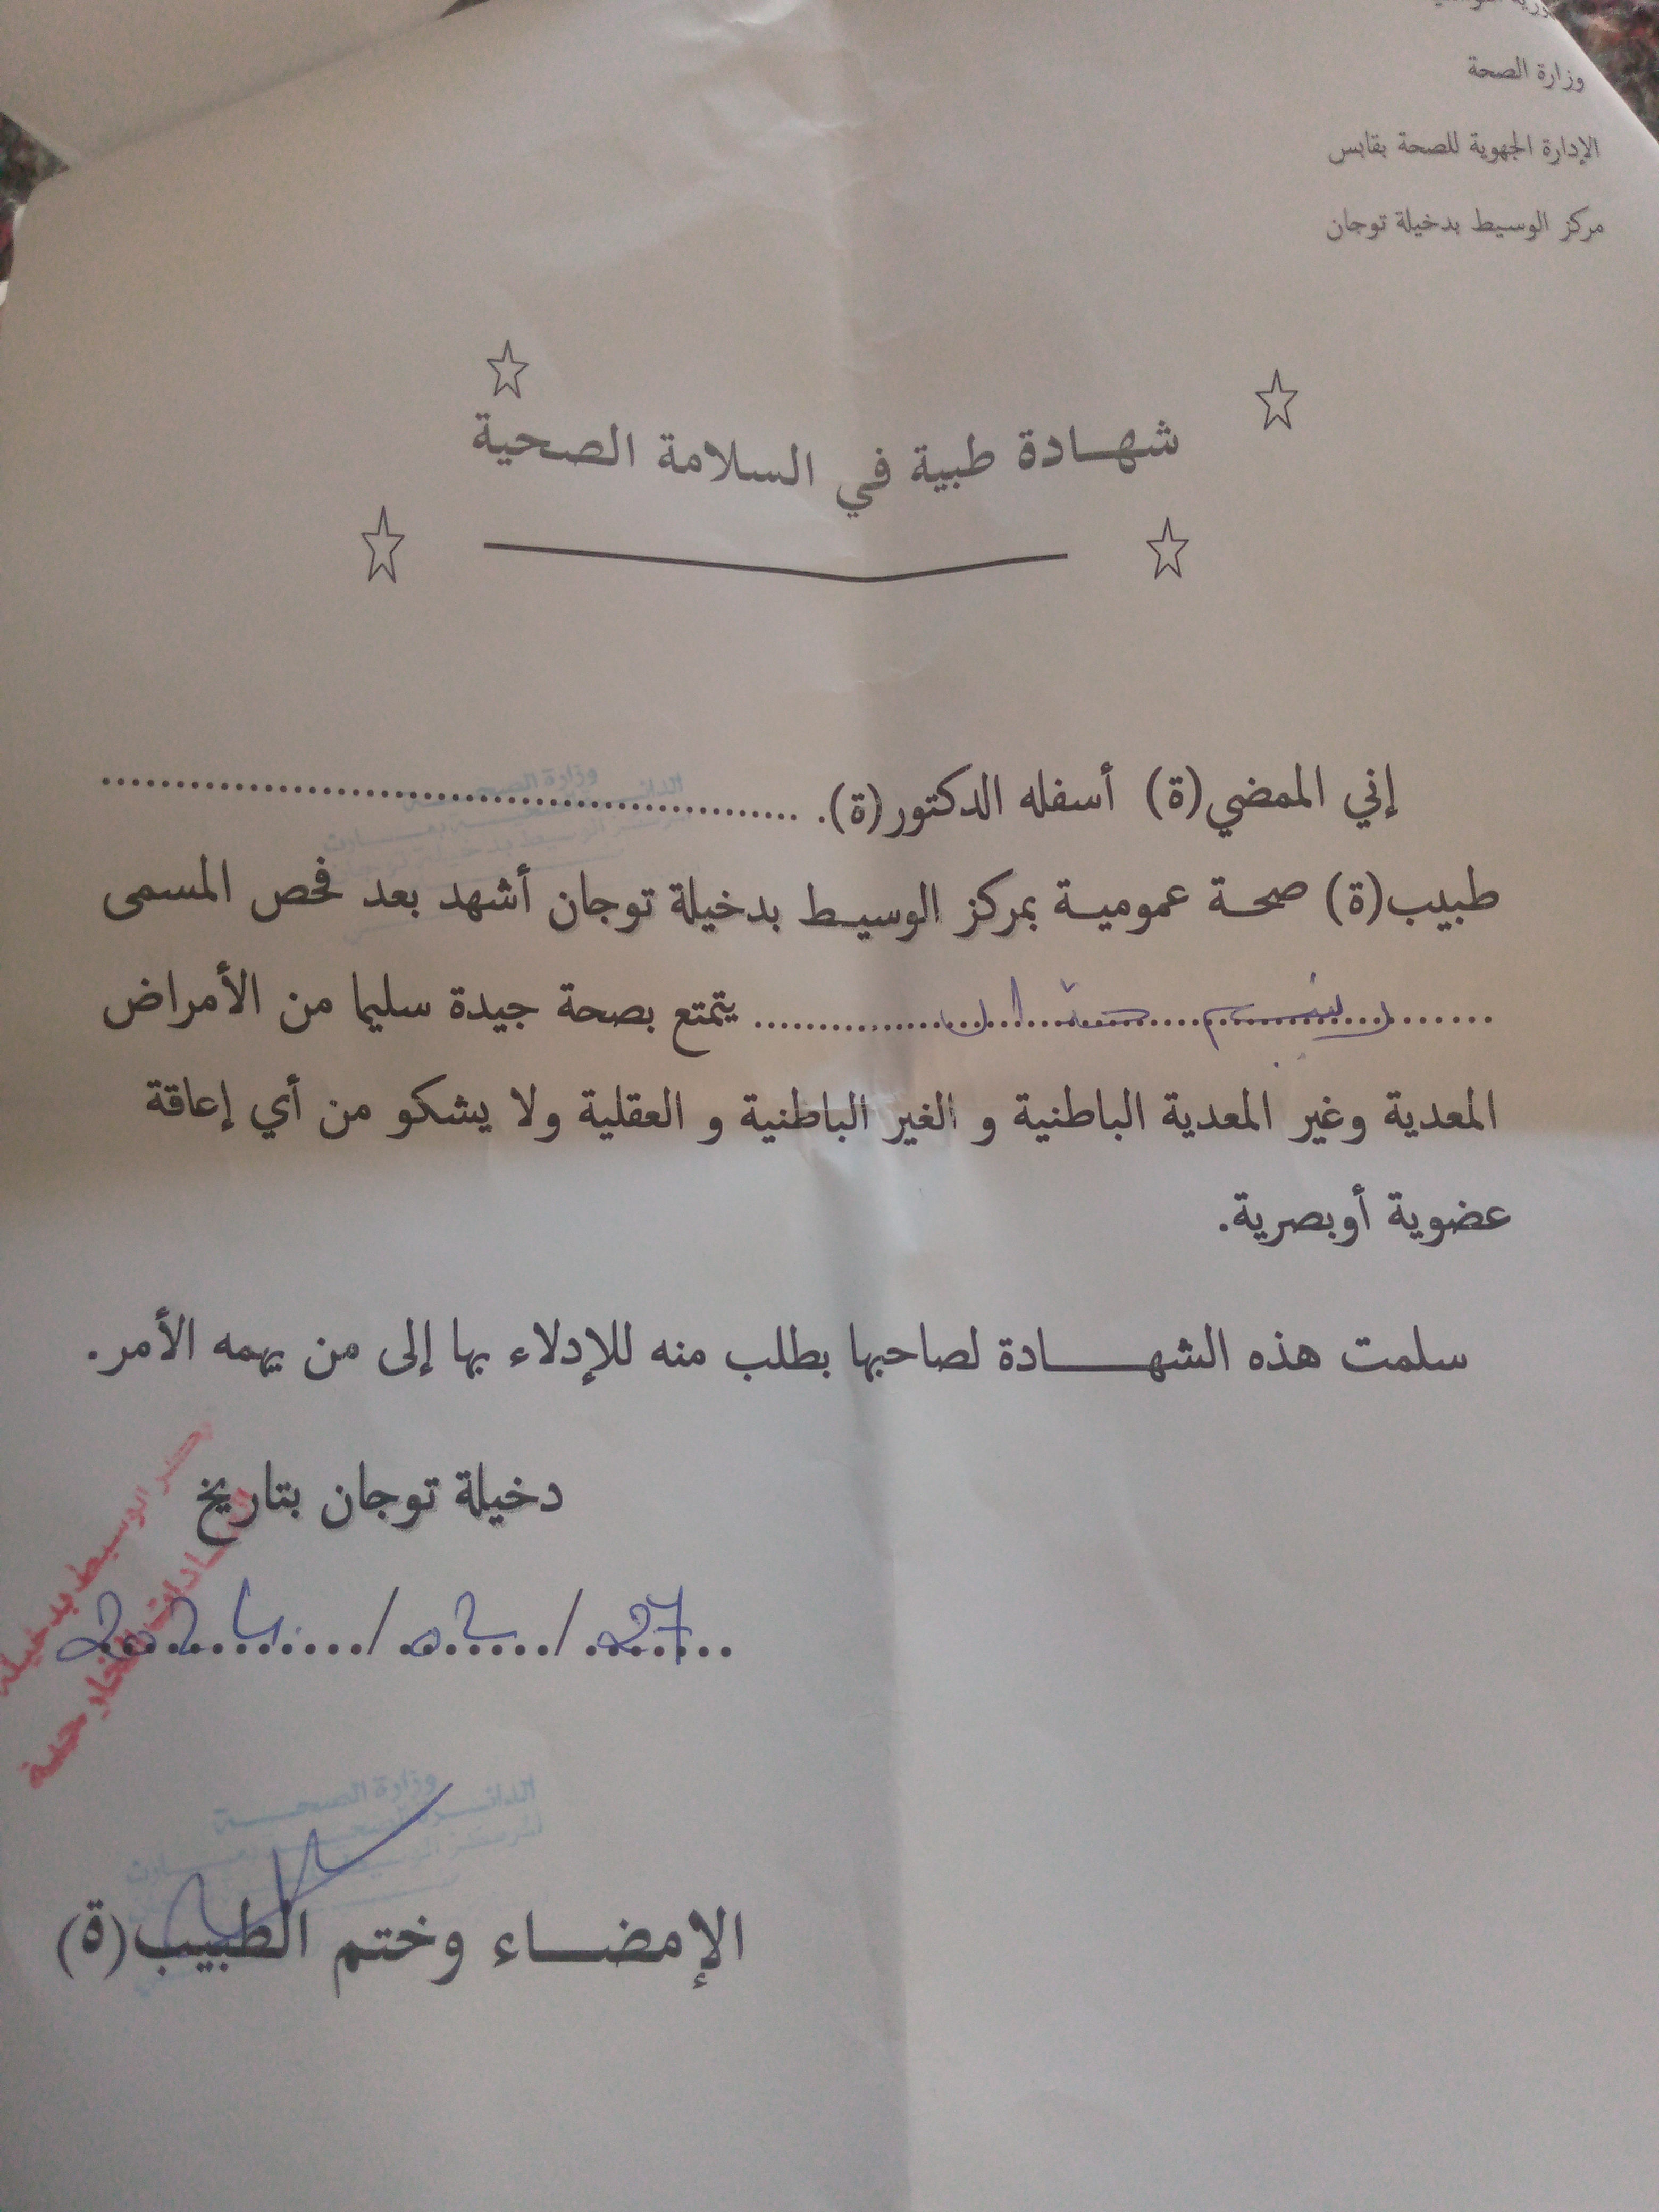 وزارة الصحة
الإدارة الجهوية للصحة بقابس
مركز الوسيط بدخيلة توجان
شهادة طبية في السلامة الصحية
إني الممضي(ة) أسفله الدكتور(ة).
وزارة الصحة
طبيب(ة) صحة عمومية بمركز الوسيط بدخيلة توجان أشهد بعد فحص المسمى
يتمتع بصحة جيدة سليما من الأمراض
المعدية وغير المعدية الباطنية و الغير الباطنية و العقلية ولا يشكو من أي إعاقة
عضوية أوبصرية.
سلمت هذه الشهادة لصاحبها بطلب منه للإدلاء بها إلى من يهمه الأمر.
دخيلة توجان بتاريخ
27/02/2024
الوسيط بدخيلة
وزارة الصحة
الإمضاء وختم الطبيب(ة)